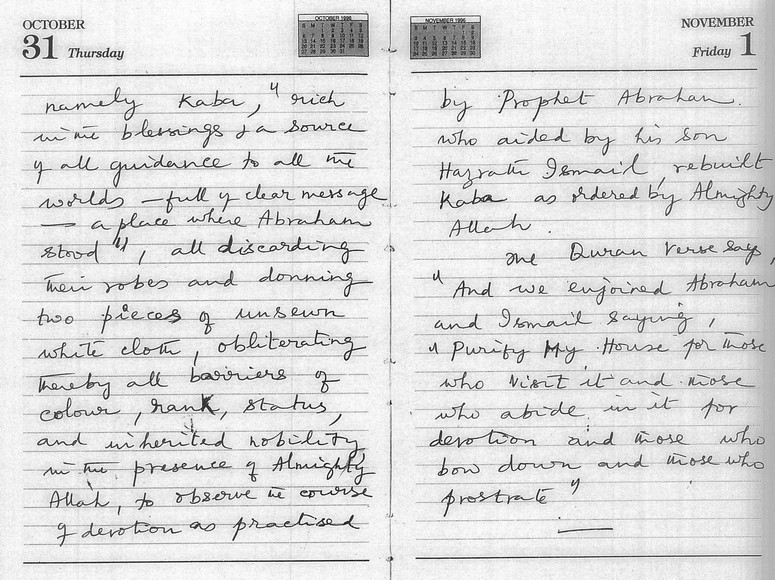 OCTOBER
31 Thursday
OCTOBER 1996
namely Kaba, " rich
in the blessings & a source
of all guidance to all the
worlds — full of clear message
— a place where Abraham
stood ", all discarding
their robes and donning
two pieces of unsewn
white cloth, obliterating
thereby all barriers of
colour, rank, status,
and inherited nobility
in the presence of Almighty
Allah, to observe the course
of devotion as practised
NOVEMBER 1996
NOVEMBER
Friday 1
by Prophet Abraham.
who aided by his son
Hazrath Ismail, rebuilt
Kaba as ordered by Almighty
Allah.
The Quran Verse says,
" And we enjoined Abraham
and Ismail saying,
" Purify My House for those
who visit it and those
who abide in it for
devotion and those who
bow down and those who
prostrate "